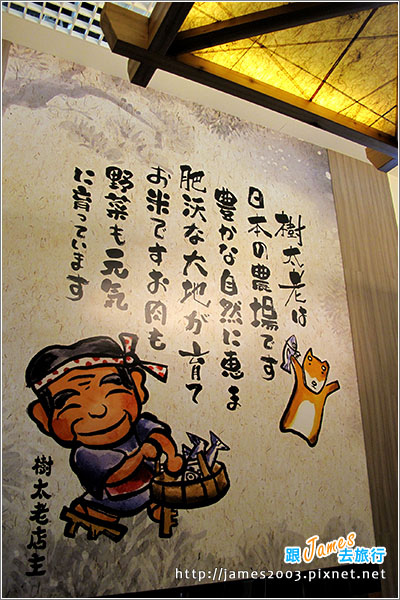 樹太老は
日本の農場です
豊かな自然に恵ま
肥沃な大地が育て
お米ですお肉も
野菜も元気
に育っています
樹太老店主
跟James去旅行
http://james2003.pixnet.net